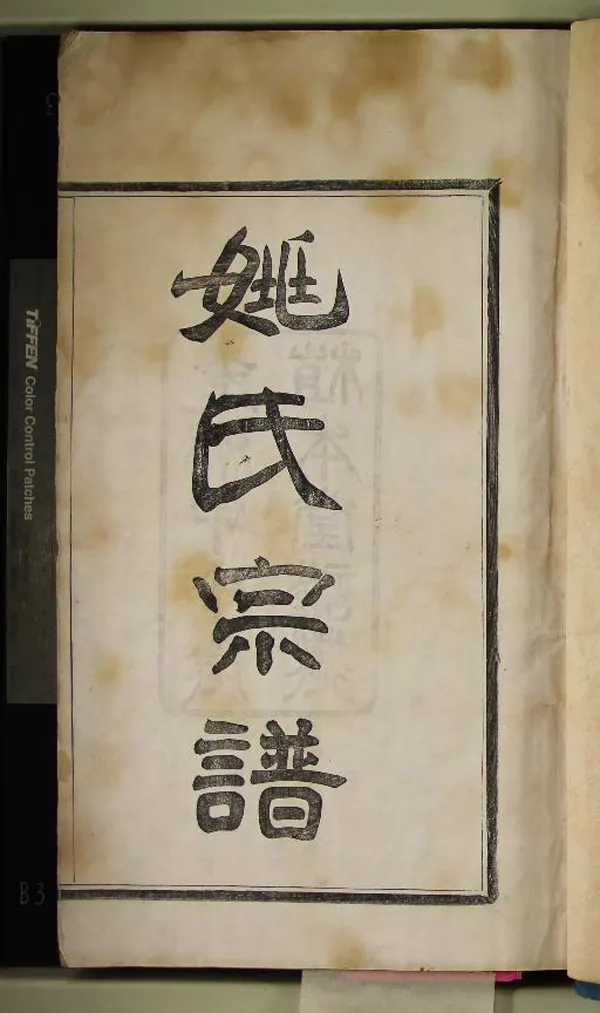 姚氏宗譜
TIFFEN Color Control Patches
B3